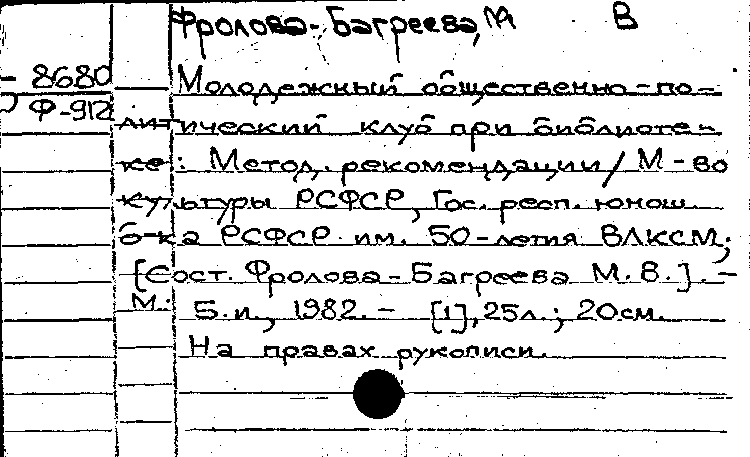 Фролова-Багреева, М В
- 8680 Молодежный общественно-по-
Ф-912 литический клуб при библиоте-
ке: Метод. рекомендации/ М-во
культуры РСФСР, Гос. респ. юнош.
б-ка РСФСР им. 50-летия ВЛКСМ;
[Сост. Фролова-Багреева М.В.]. -
М.: Б.и., 1982. - [1], 25л.; 20см.
На правах рукописи.